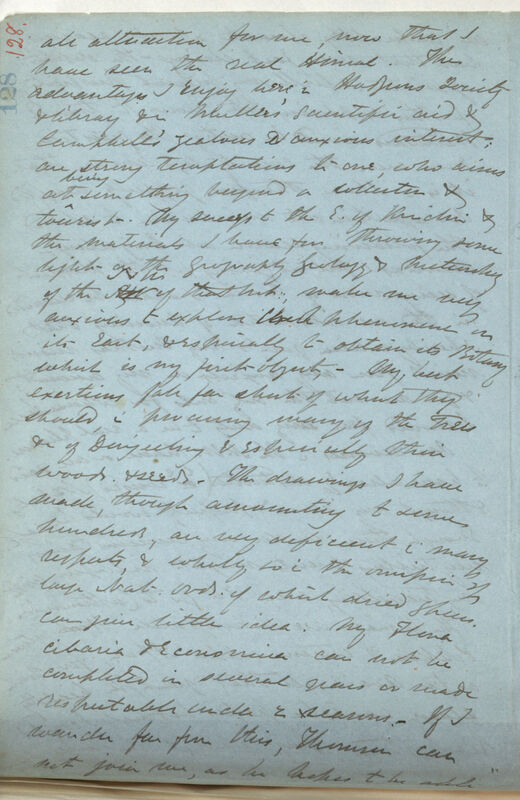 128.
128
all attraction for me, now that I
have seen the real Himal. The
advantages I enjoy here in Hodgsons Society
& library & in Mullers Scientific aid &
Campbell's zealous & anxious interest;
are strong temptations to one, who aims
at being something beyond a collector &
tourist. My success to the E. of Kinchin &
the materials I have for throwing some
light on the Geography Geology &
of the of that part, make me very
anxious to explore phenomena in
its East, & especially to obtain its Botany
which is my first object. My best
exertions fall far short of what they
should in procuring many of the Trees
&c of Darjeeling & especially their
woods & seeds. The drawings I have
made, though amounting to some
hundreds, are very deficient in many
respects, & wholly so in the
large Nat. Ords. of which dried
can give little idea. My Flora
cibaria & Economica can not be
completed in several years or made
respectable under 2 seasons. If I
wander far from this, Thomson can
not join me, as he hopes to be able